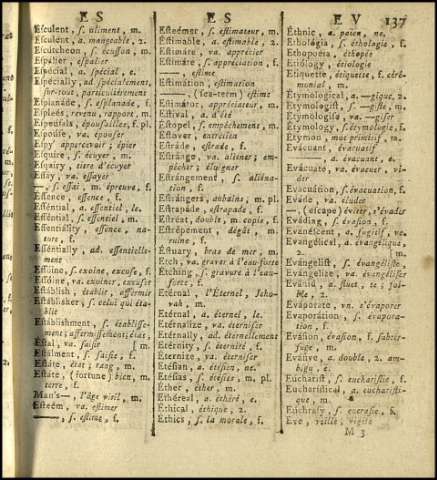 E S
E S
E V
137
Esculent, s. aliment, m.
— a. mangeable, 2.
Escútcheon, s. écusson, m.
Espalier, espalier
Espécial, a. spécial, e.
Espécially, ad. spécialement,
sur-tout, particuliérement
Esplanáde, s. esplanade, f.
Espleés, revenu, rapport, m.
Espoúsals, épousailles, f. pl.
Espoúse, va. épouser
Espy appercevoir; épier
Esquire, s. écuyer, m.
Esquiry, titre d'écuyer
Essay, va. essayer
—, s. essai, m. épreuve, f.
Essence, essence, f.
Esséntial, a. essentiel, le
Esséntial, s. essentiel, m.
Essentiálity, essence, na-
ture, f.
Esséntially, ad. essentielle-
ment
Essóine, s. exoine, excuse, f.
Essóine, va. exoiner, excuser
Estáblish, établir, affermir
Estáblisher, s. celui qui éta-
blit
Estáblishment, s. établisse-
ment; affermissement; état
Estal, va. saisir
Estálment, s. saisie, f.
Estáte, état; rang, m.
Estáte, (fortune) bien, m.
terre, f.
Man's—, l'âge viril, m.
Esteém, va. estimer
—, s. estime, f.
Esteémer, s. estimateur, m.
Estimable, a. estimable, 2.
Estimáte, va. apprécier
Estimáte, s. appréciation, f.
—, estime
Estimátion, estimation
— (sea-term) estime
Estimátor, appréciateur, m.
Estival, a. d'été
Estópel, s. empêchement, m.
Estóver, entretien
Estráde, estrade, f.
Estránge, va. aliéner; em-
pêcher; éloigner
Estrángement, s. aliéna-
tion, f.
Estrángers, aubains, m. pl.
Estrapáde, estrapade, f.
Estréat, double, m. copie, f.
Estrépement, dégât, m.
ruine, f.
Estuary, bras de mer, m.
Etch, va. graver à l'eau-forte
Etching, s. gravure à l'eau-
forte, f.
Etérnal, l'Éternel, Jeho-
vah, m.
Etérnal, a. éternel, le.
Etérnalize, va. éterniser
Etérnally, ad. éternellement
Etérnity, s. éternité, f.
Etérnize, va. éterniser
Etésian, a. étésien, ne.
Etésias, s. étésies, m. pl.
Ether, éther, m.
Ethéreal, a. éthéré, e.
Ethical, éthique, 2.
Ethics, s. la morale, f.
Ethnic, a. païen, ne.
Ethológia, s. éthologie, f.
Ethopoeia, éthopée
Etiólogy, étiologie
Etiquette, étiquette, f. céré-
monial, m.
Etymológical, a. —gique, 2.
Etymológist, s. —giste, m.
Etymológist, va. —giser
Etymólogy, s. étymologie, f.
Etymon, mot primitif, m.
Evácuant, évacuatif
— a. évacuant, e.
Evácuate, va. évacuer, vi-
der
Evacuátion, s. évacuation, f.
Eváde, va. éluder
—, (escape) éviter, s'évader
Eváding, s. évasion, f.
Evanéscent, a. fugitif, ve.
Evangélical, a. évangélique,
2.
Evangélist, s. évangéliste
Evangelíze, va. évangéliser
Evánid, a. fluet, te; foi-
ble, 2.
Eváporate, vn. s'évaporer
Evaporátion, s. évapora-
tion, f.
Evásion, évasion, f. subter-
fuge, m.
Evásive, a. double, 2. am-
bigu, e.
Eucharist, s. eucharistie, f.
Eucharistical, a. eucharisti-
que, m.
Euchrasy, s. eucrasie, f.
Eve, veille, vigile
M 3